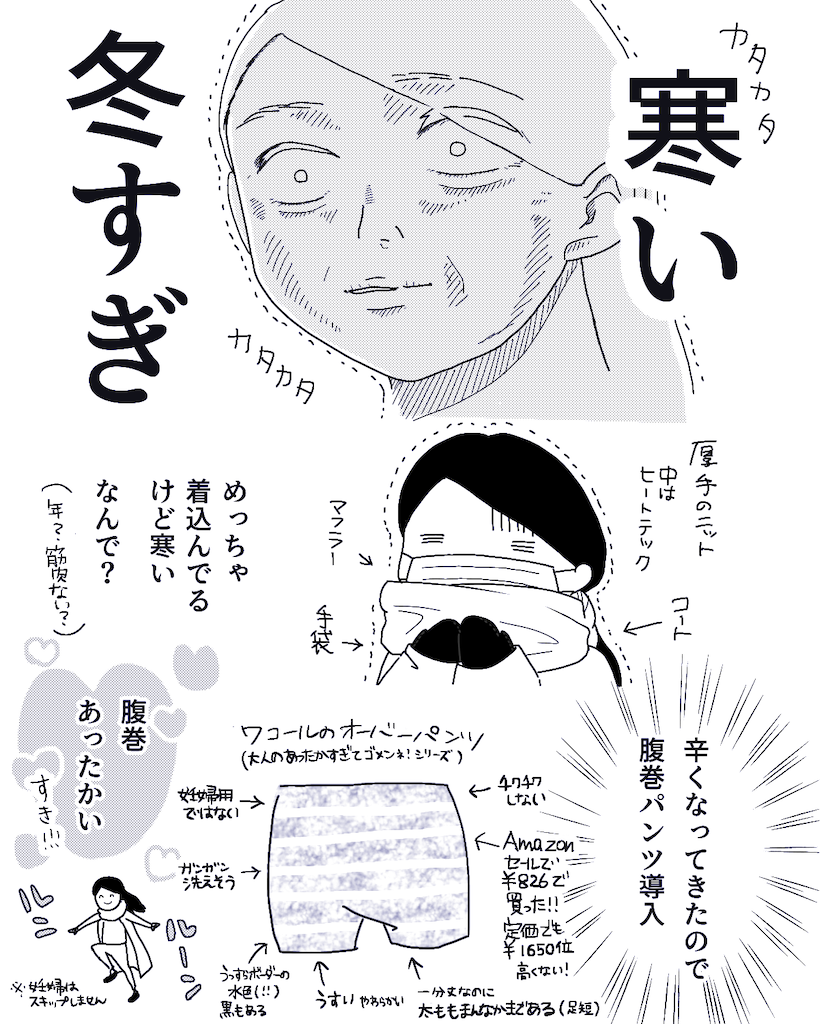 カタカタ
寒い
冬すぎ
カタカタ
厚手のニット
中は
ヒートテック
コート
マフラー
手袋
めっちゃ
着込んでる
けど寒い
なんで?
(年?筋肉ない?)
辛くなってきたので
腹巻パンツ導入
ワコールのオーバーパンツ
(大人のあったかすぎてゴメンネ!シリーズ)
チクチク
しない
Amazon
セールで
¥826で
買った!!
定価でも
¥1650位
高くない!
妊婦用
ではない
ガンガン
洗えそう
うっすらボーダーの
水色(!!)
黒もある
うすい やわらかい
一分丈なのに
太ももまんなかまである(足短)
腹巻
あったかい
すき!!!
ルン
ルーン
※妊婦は
スキップしません